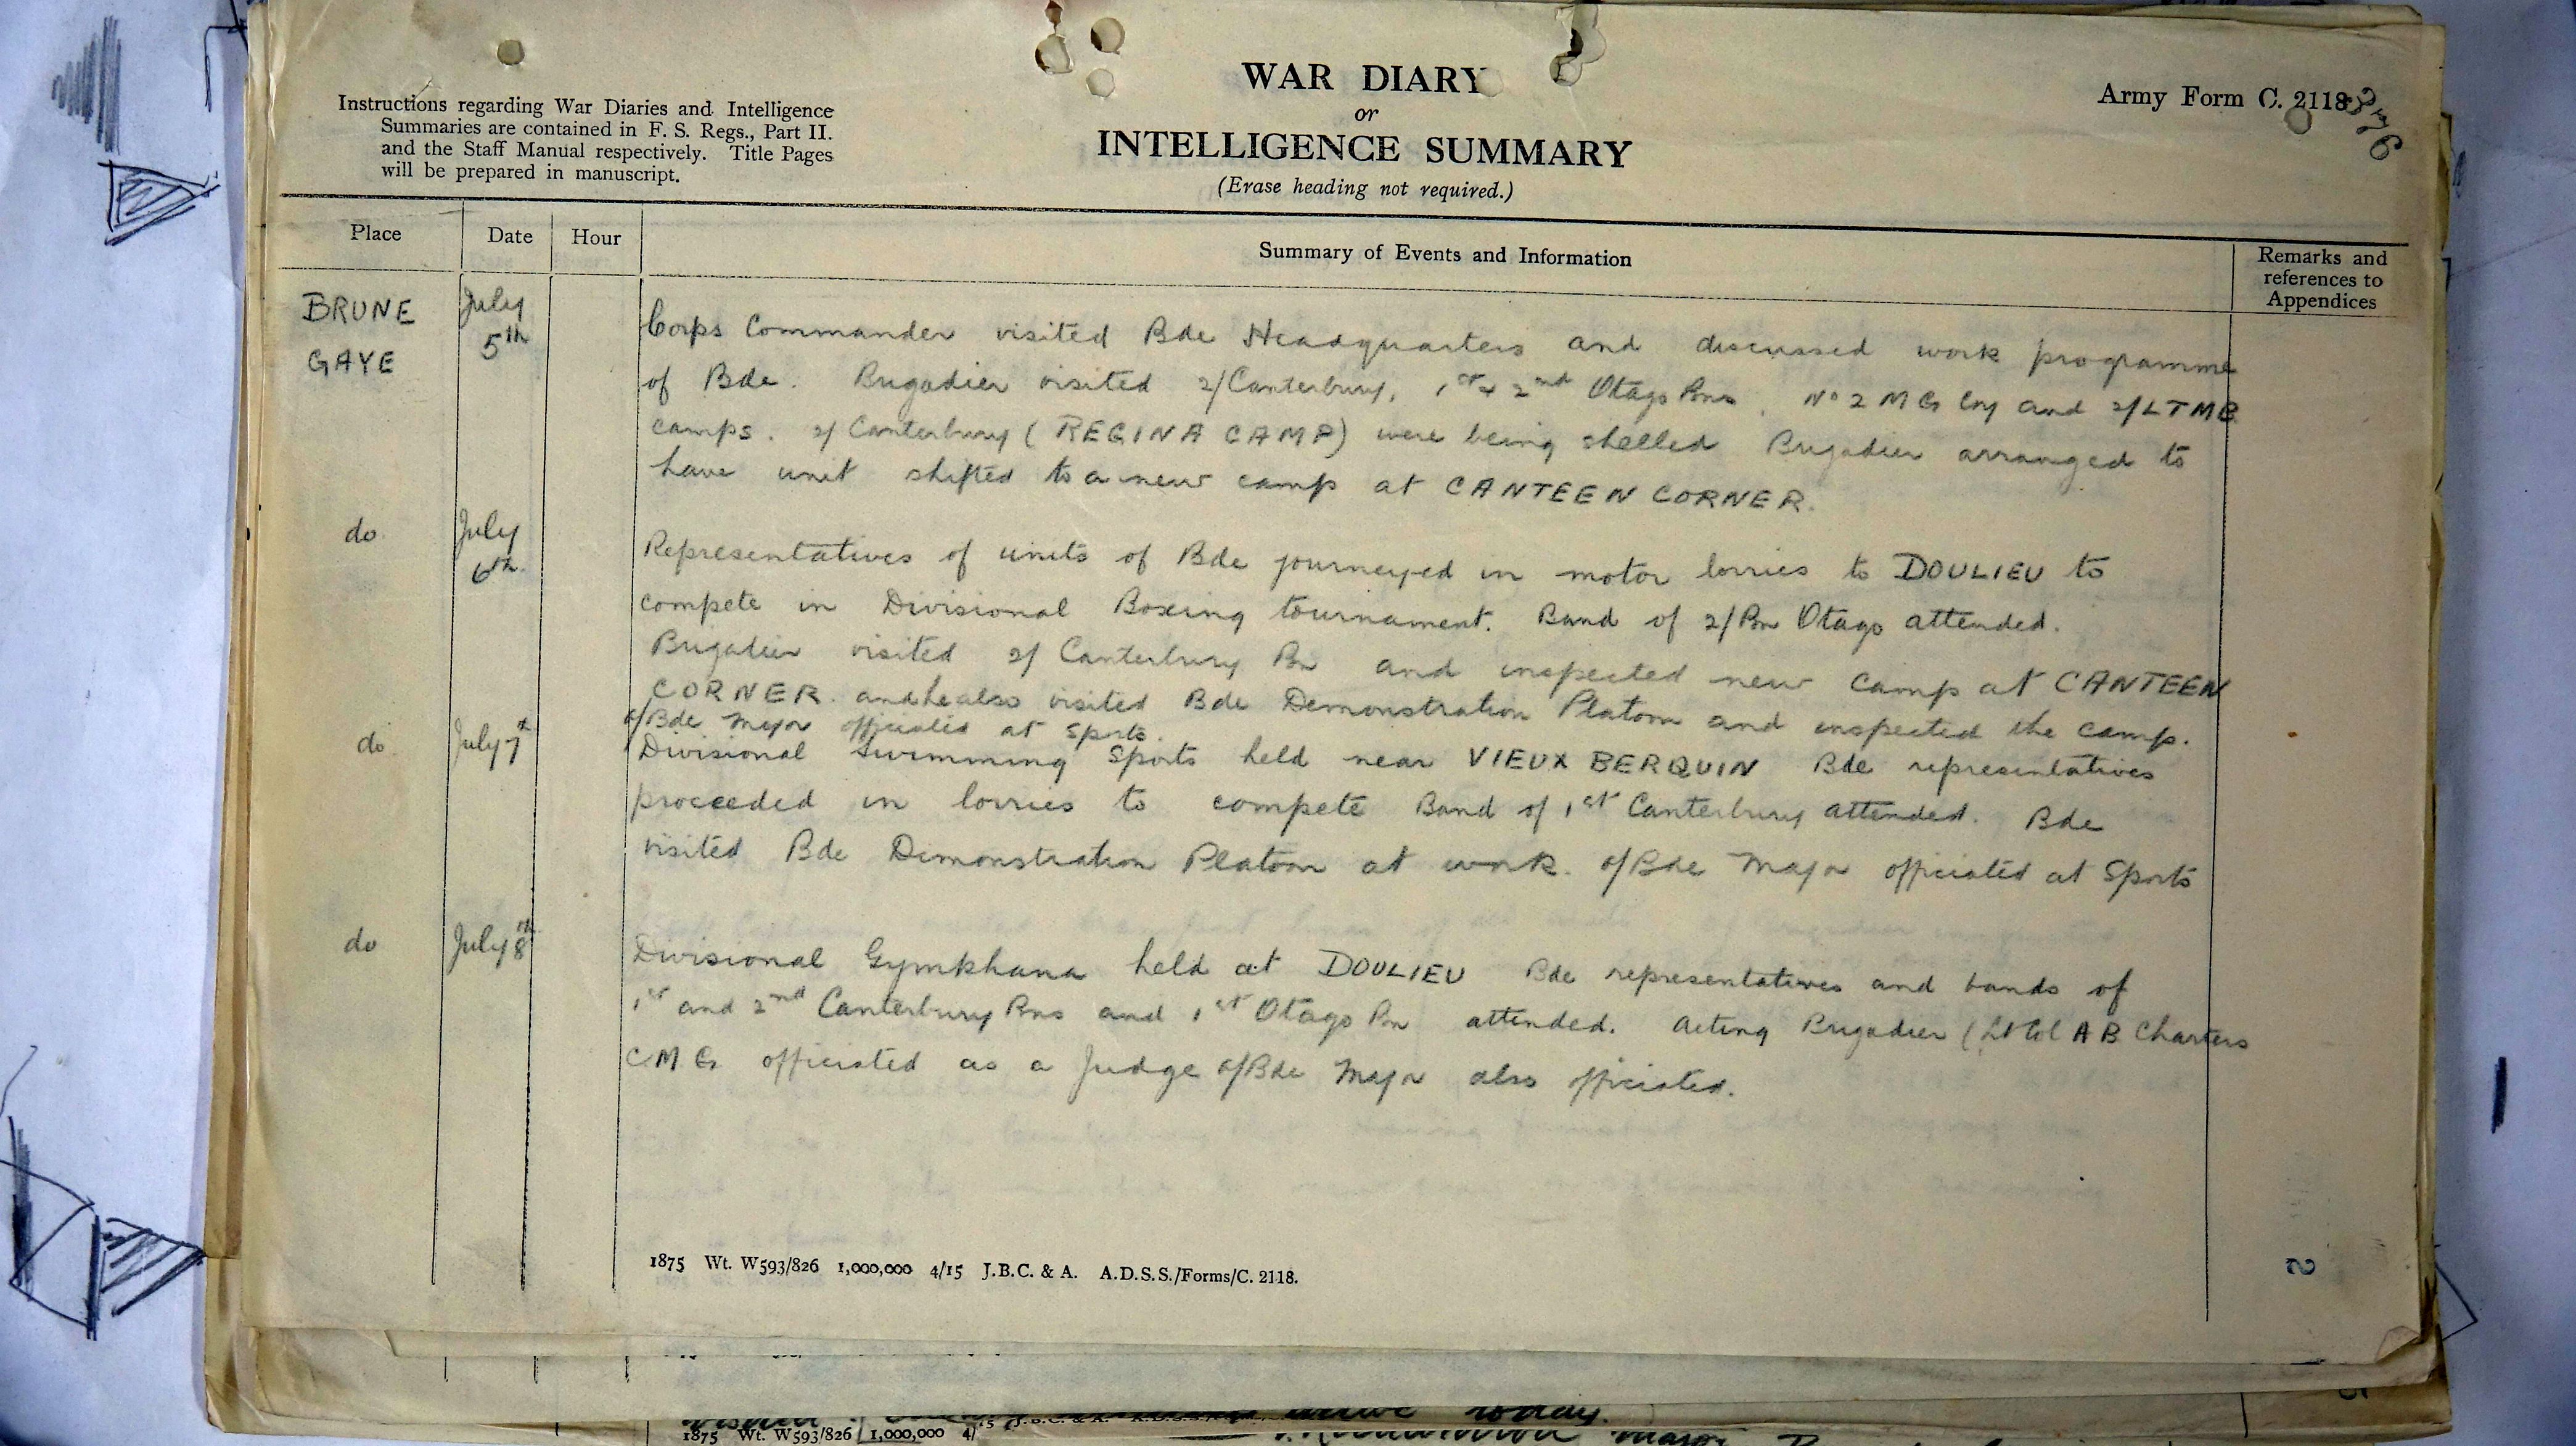 Instructions regarding War Diaries and Intelligence
Summaries are contained in F. S. Regs., Part II.
and the Staff Manual respectively. Title Pages
will be prepared in manuscript.
WAR DIARY
or
INTELLIGENCE SUMMARY
(Erase heading not required.)
Army Form C. 2118
Place
Date
Hour
Summary of Events and Information
Remarks and
references to
Appendices
BRUNE
GAYE
July
5th
Corps Commander visited Bde Headquarters and discussed work programme
of Bde. Brigadier visited 2/Canterbury, 1st & 2nd Otago Bns, No 2 M G Coy and 2/LTMB
camps. 2/ Canterbury (REGINA CAMP) were being shelled Brigadier arranged to
have unit shifted to a new camp at CANTEEN CORNER.
do
July
6th
Representatives of units of Bde journeyed in motor lorries to DOULIEU to
compete in Divisional Boxing tournament. Band of 2/Bn Otago attended.
Brigadier visited 2/ Canterbury Bn and inspected new camp at CANTEEN
CORNER. and he also visited Bde Demonstration Platoon and inspected the camp.
a/Bde Major officiated at Sports.
do
July 7th
Divisional Swimming Sports held near VIEUX BERQUIN Bde representatives
proceeded in lorries to compete Band of 1st Canterbury attended. Bde
visited Bde Demonstration Platoon at work. a/Bde Major officiated at Sports
do
July 8th
Divisional Gymkhana held at DOULIEU Bde representatives and bands of
1st and 2nd Canterbury Bns and 1st Otago Bn attended. Acting Brigadier (Lt Col A B Charters
C M G officiated as a Judge a/Bde Major also officiated.
1875 Wt. W593/826 1,000,000 4/15 J.B.C. & A. A.D.S.S./Forms/C. 2118.
2
today.
1875 Wt. W593/826 1,000,000 4/
Major